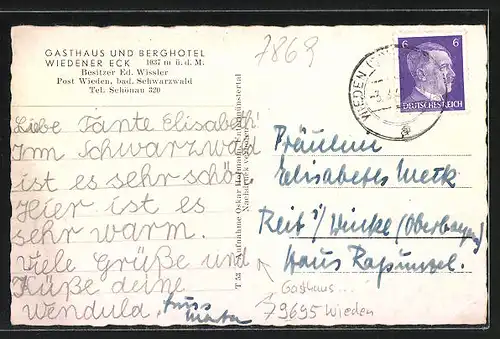 GASTHAUS UND BERGHOTEL
WIEDENER ECK 1037 m ü. d. M.
Besitzer Ed. Wissler
Post Wieden, bad. Schwarzwald
Tel. Schönau 320
Liebe Tante Elisabeth!
Im Schwarzwald
ist es sehr schön.
Hier ist es
sehr warm.
Viele Grüße und
Küße deine
Wendula.
7869
WIEDEN
6 6
DEUTSCHES REICH
T 53 Aufnahme Oskar
Nachdruck verboten
Fräulein
Elisabetes Merk
Reit i/ Winkl (Oberbayern)
Haus Rapunzel.
Gasthaus...
79695 Wieden